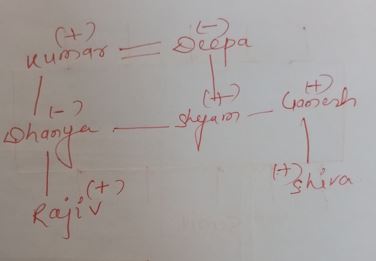 (+) (-)
Kumar Deepa
(-) (+) (+)
Dhanya Shyam Ganesh
(+) (+)
Rajiv Shiva